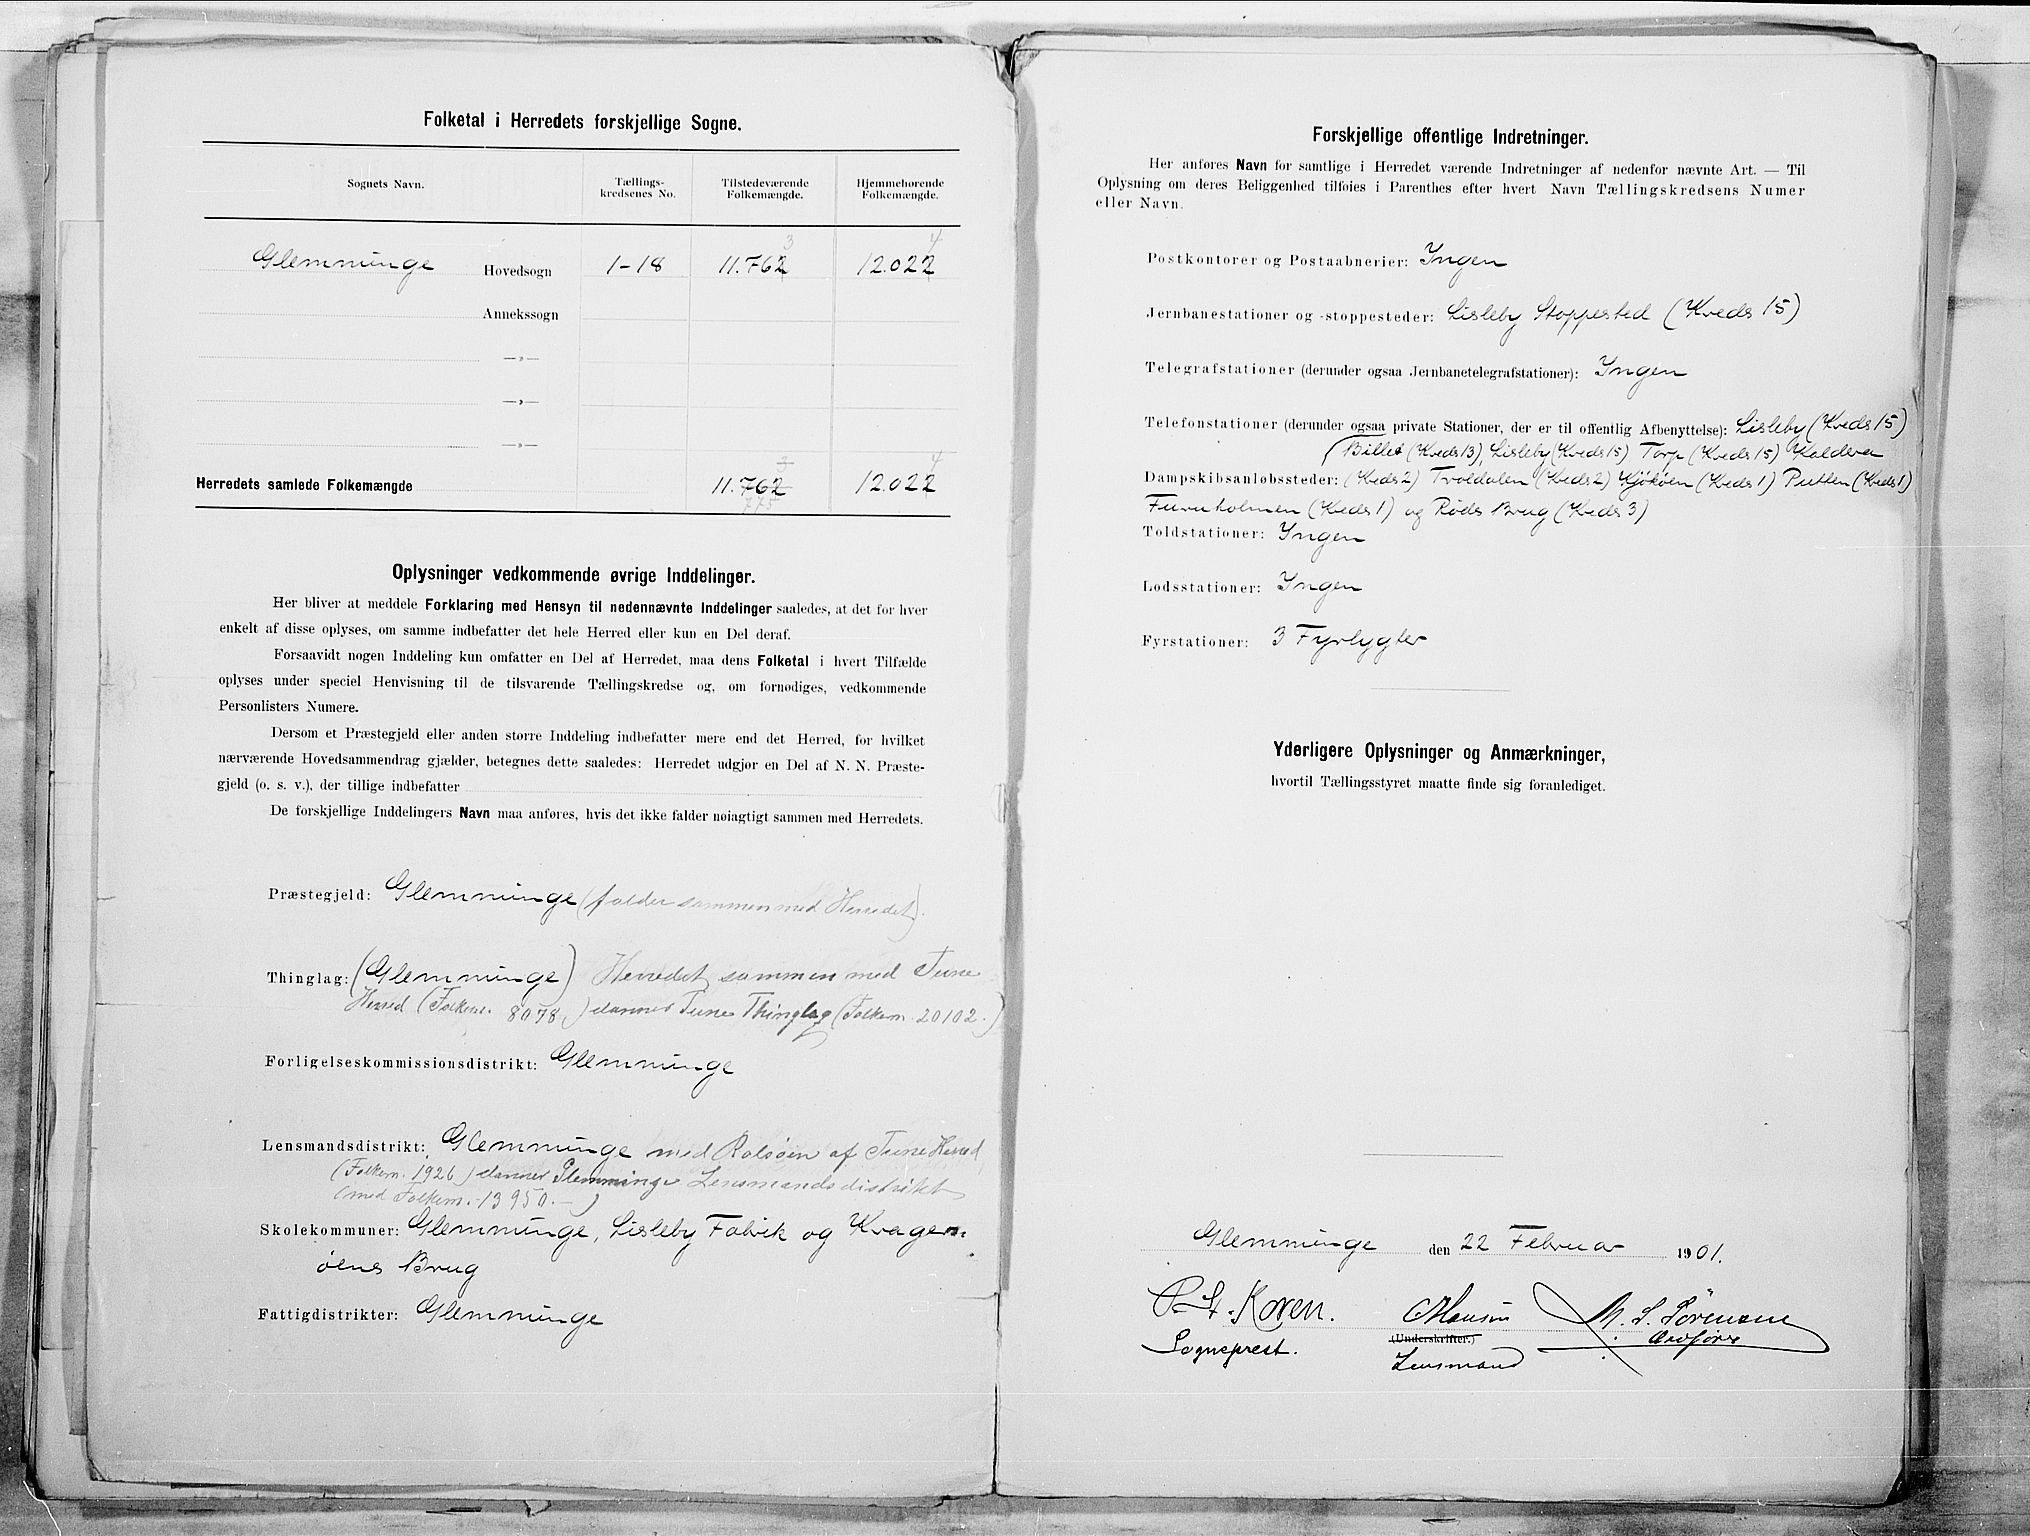 Folketal i Herredets forskjellige Sogne.
Sognets Navn. Tællings-kredsenes No. Tilstedeværende Folkemængde. Hjemmehørende Folkemængde.
3 4
Glemminge Hovedsogn 1-18 11.762 12.022
Annekssogn
—»—
—»—
—»—
3 4
Herredets samlede Folkemængde 11.762 12.022
775
Oplysninger vedkommende øvrige Inddelinger.
Her bliver at meddele Forklaring med Hensyn til nedennævnte Inddelinger saaledes, at det for hver
enkelt af disse oplyses, om samme indbefatter det hele Herred eller kun en Del deraf.
Forsaavidt nogen Inddeling kun omfatter en Del af Herredet, maa dens Folketal i hvert Tilfælde
oplyses under speciel Henvisning til de tilsvarende Tællingskredse og, om fornødiges, vedkommende
Personlisters Numere.
Dersom et Præstegjeld eller anden større Inddeling indbefatter mere end det Herred, for hvilket
nærværende Hovedsammendrag gjælder, betegnes dette saaledes: Herredet udgjør en Del af N. N. Præste-
gjeld (o. s. v.), der tillige indbefatter
De forskjellige Inddelingers Navn maa anføres, hvis det ikke falder nøiagtigt sammen med Herredets.
Præstegjeld: Glemminge (falder sammen med Herredet).
Thinglag: (Glemminge) Herredet sammen med Tune
Herred (Folkem. 8078.) danner Tune Thinglag (Folkem. 20102.)
Forligelseskommissionsdistrikt: Glemminge
Lensmandsdistrikt: Glemminge med Rolsøen af Tune Herred
(Folkem. 1926) danner Glemminge Lensmandsdistrikt
(med Folkem. 13950.-)
Skolekommuner: Glemminge, Lisleby Fabrik og Kragen-
øens Brug
Fattigdistrikter: Glemminge
Forskjellige offentlige Indretninger.
Her anføres Navn for samtlige i Herredet værende Indretninger af nedenfor nævnte Art. — Til
Oplysning om deres Beliggenhed tilføies i Parenthes efter hvert Navn Tællingskredsens Numer
eller Navn.
Postkontorer og Postaabnerier: Ingen
Jernbanestationer og -stoppesteder: Lisleby Stoppested (Kreds 15)
Telegrafstationer (derunder ogsaa Jernbanetelegrafstationer): Ingen
Telefonstationer (derunder ogsaa private Stationer, der er til offentlig Afbenyttelse): Lisleby (Kreds 15)
(Billet (Kreds 13), Lisleby (Kreds 15) Torp (Kreds 15) Kaldera
Dampskibsanløbssteder: (Kreds 2) Troldalen (Kreds 2) Kjøkøen (Kreds 1) Putten (Kreds 1)
Furuholmen (Kreds 1) og Røds Brug (Kreds 3)
Toldstationer: Ingen
Lodsstationer: Ingen
Fyrstationer: 3 Fyrlygter
Yderligere Oplysninger og Anmærkninger,
hvortil Tællingsstyret maatte finde sig foranlediget.
Glemminge den 22 Februar 1901.
P. St. Koren. Hansen M. S. Sörensen
(Underskrifter.) Ordfører
Sogneprest. Lensmand